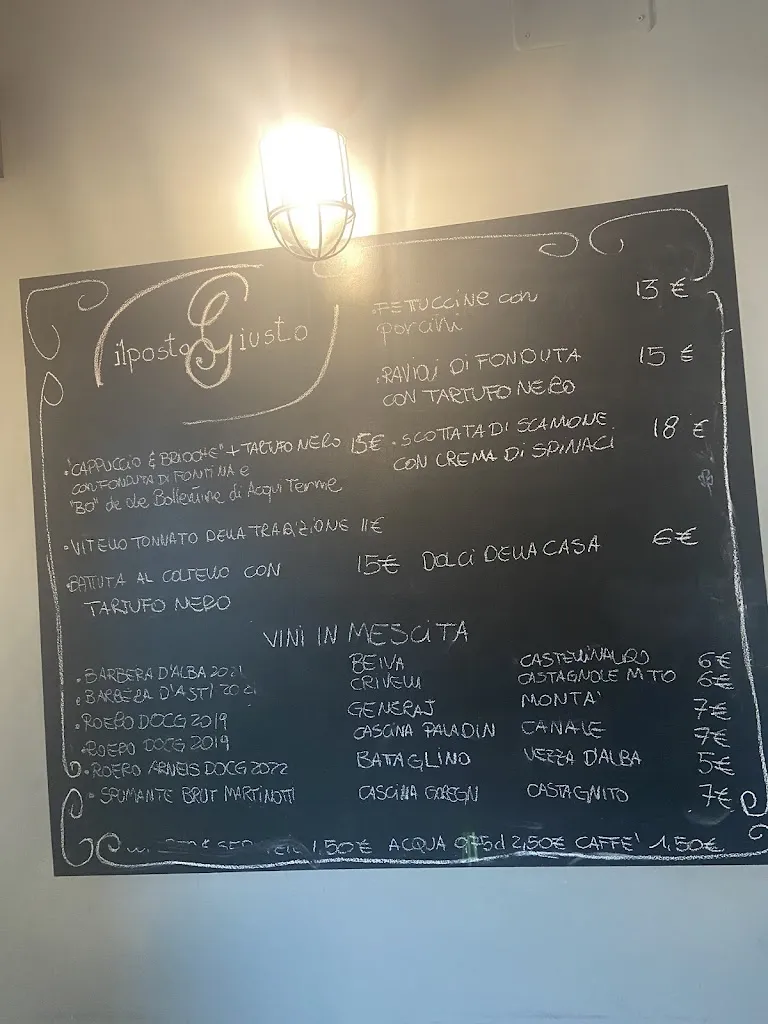 il posto Giusto
"CAPPUCCIO & BRIOCHE" + TARTUFO NERO 15€
CON FONDUTA DI FONTINA e
"BO" de de Bollentine di Acqui Terme
·VITELLO TONNATO DELLA TRADIZIONE 11€
·BATTUTA AL COLTELLO CON 15€
TARTUFO NERO
·FETTUCCINE con 13 €
porcini
·RAVIOLI DI FONDUTA 15 €
CON TARTUFO NERO
·SCOTTATA DI SCAMONE 18 €
CON CREMA DI SPINACI
DOLCI DELLA CASA 6€
VINI IN MESCITA
·BARBERA D'ALBA 2021 BEIVA CASTELLINALDO 6€
·BARBERA D'ASTI 2021 CRIVELLI CASTAGNOLE MTO 6€
·ROERO DOCG 2019 GENERAJ MONTA' 7€
·ROERO DOCG 2019 CASCINA PALADIN CANALE 7€
·ROERO ARNEIS DOCG 2022 BATTAGLINO VEZZA D'ALBA 5€
·SPUMANTE BRUT MARTINOTTI CASCINA CASTAGNITO 7€
1,50€ ACQUA 0,75cl 2,50€ CAFFE' 1,50€